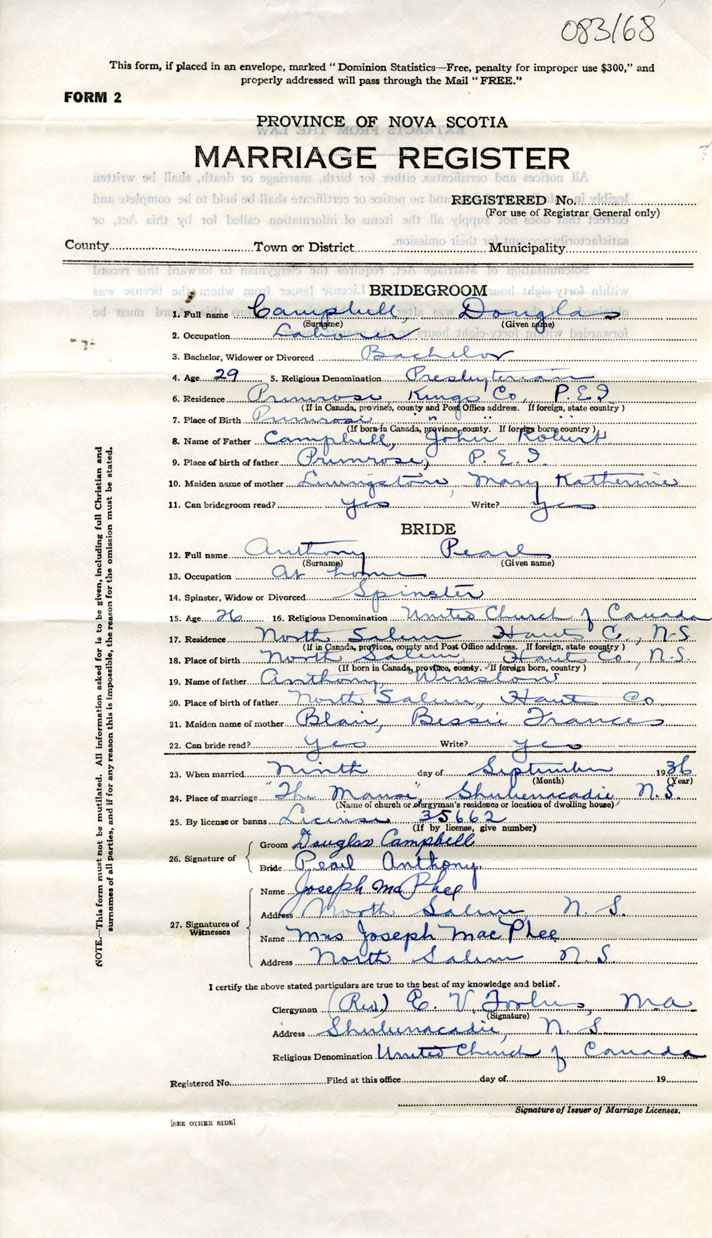 083/68
This form, if placed in an envelope, marked "Dominion Statistics—Free, penalty for improper use $300," and
properly addressed will pass through the Mail "FREE."
FORM 2
PROVINCE OF NOVA SCOTIA
MARRIAGE REGISTER
REGISTERED No.
(For use of Registrar General only)
County Town or District Municipality
BRIDEGROOM
1. Full name Campbell, Douglas
(Surname) (Given name)
2. Occupation Laborer
3. Bachelor, Widower or Divorced Bachelor
4. Age 29 5. Religious Denomination Presbyterian
6. Residence Primrose Kings Co, P.E.I
(If in Canada, province, county and Post Office address. If foreign, state country )
7. Place of Birth Primrose " " "
(If born in Canada, province, county. If foreign born, country )
8. Name of Father Campbell, John Robert
9. Place of birth of father Primrose, P.E.I.
10. Maiden name of mother Livingstone, Mary Katherine
11. Can bridegroom read? yes Write? yes
BRIDE
12. Full name Anthony Pearl
(Surname) (Given name)
13. Occupation At home
14. Spinster, Widow or Divorced Spinster
15. Age 26 16. Religious Denomination United Church of Canada
17. Residence North Salem Hants Co, N.S
(If in Canada, province, county and Post Office address. If foreign, state country )
18. Place of birth North Salem, Hants Co, N.S.
(If born in Canada, province, county. If foreign born, country )
19. Name of father Anthony, Winslow
20. Place of birth of father North Salem, Hants Co
21. Maiden name of mother Blair, Bessie Frances
22. Can bride read? yes Write? yes
23. When married Ninth day of September 1936
(Month) (Year)
24. Place of marriage "The Manse", Shubenacadie, N.S.
(Name of church or clergyman's residence or location of dwelling house)
25. By license or banns License 35662
(If by license, give number)
26. Signature of
Groom Douglas Campbell
Bride Pearl Anthony
27. Signatures of Witnesses
Name Joseph MacPhee
Address North Salem N.S.
Name Mrs Joseph MacPhee
Address North Salem N.S
I certify the above stated particulars are true to the best of my knowledge and belief.
Clergyman (Rev) E. V. M.A
(Signature)
Address Shubenacadie, N.S
Religious Denomination United Church of Canada
Registered No. Filed at this office day of 19
Signature of Issuer of Marriage Licenses.
[SEE OTHER SIDE]
NOTE.—This form must not be mutilated. All information asked for is to be given, including full Christian and
surnames of all parties, and if for any reason this is impossible, the reason for the omission must be stated.